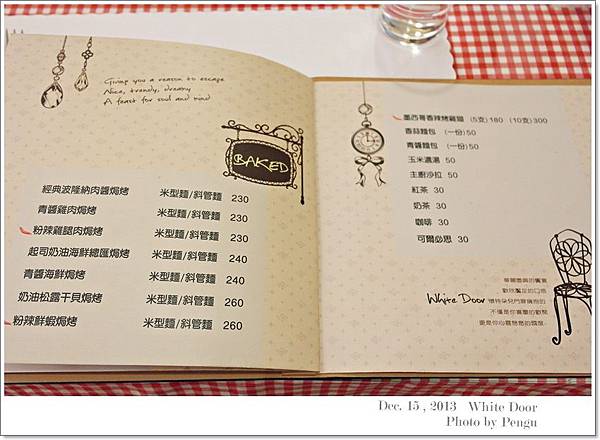 Giving you a reason to escape
Nice, trendy, dreamy
A feast for soul and mind
BAKED
經典波隆納肉醬焗烤 米型麵/斜管麵 230
青醬雞肉焗烤 米型麵/斜管麵 230
粉辣雞腿肉焗烤 米型麵/斜管麵 230
起司奶油海鮮總匯焗烤 米型麵/斜管麵 240
青醬海鮮焗烤 米型麵/斜管麵 240
奶油松露干貝焗烤 米型麵/斜管麵 260
粉辣鮮蝦焗烤 米型麵/斜管麵 260
墨西哥香辣烤雞翅 (5支)180 (10支)300
香蒜麵包 (一份)50
青醬麵包 (一份)50
玉米濃湯 50
主廚沙拉 50
紅茶 30
奶茶 30
咖啡 30
可爾必思 30
White Door
Dec. 15 , 2013 White Door
Photo by Pengu